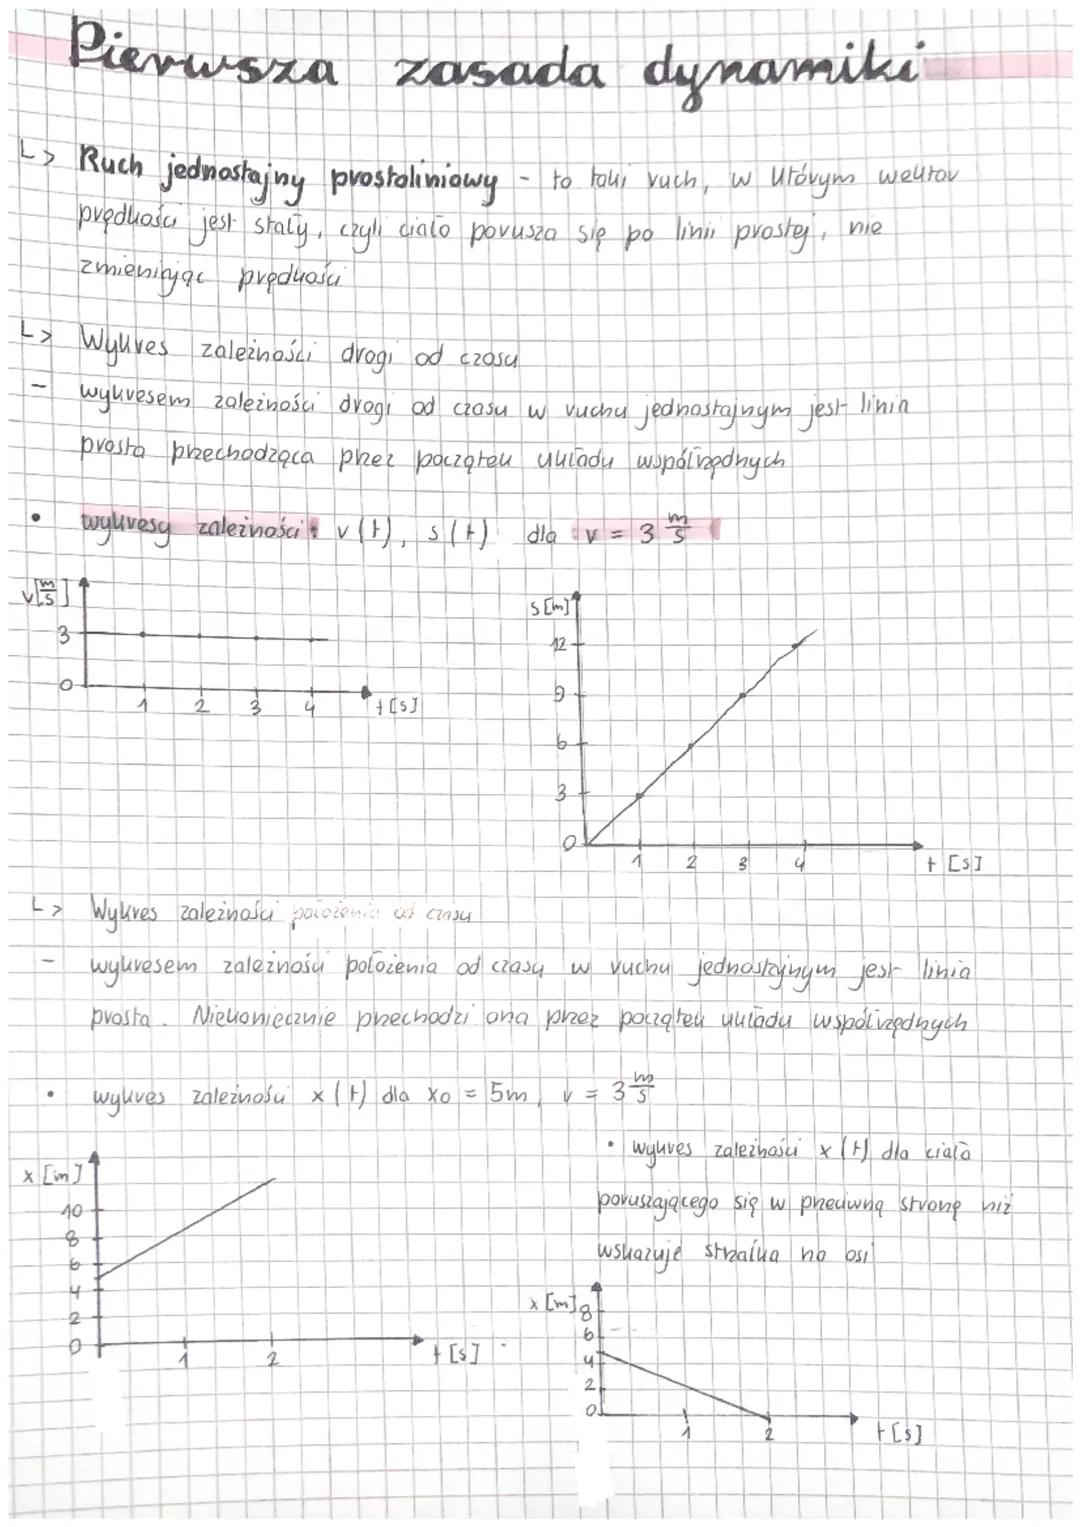 Pierwsza zasada dynamiki
L> Ruch jednostajny prostoliniowy - to taki ruch, w którym wektor
prędkości jest stały, czyli ciało porusza się po linii prostej, nie
zmieniając prędkości
L> Wykres zależności drogi od czasu
- wykresem zależności drogi od czasu w ruchu jednostajnym jest linia
prosta przechodząca przez początek układu współrzędnych
• wykresy zależności: v(t), s(t) dla v = 3 m/s
v[m/s]
3
0
1 2 3 4 t[s]
s[m]
12
9
6
3
0
1 2 3 4 t[s]
L> Wykres zależności położenia od czasu
- wykresem zależności położenia od czasu w ruchu jednostajnym jest linia
prosta. Niekoniecznie przechodzi ona przez początek układu współrzędnych
• wykres zależności x(t) dla x₀ = 5m, v = 3 m/s
x[m]
10
8
6
4
2
0
1 2 t[s]
• wykres zależności x(t) dla ciała
poruszającego się w przeciwną stronę niż
wskazuje strzałka na osi
x[m]
8
6
4
2
0
1 2 t[s]